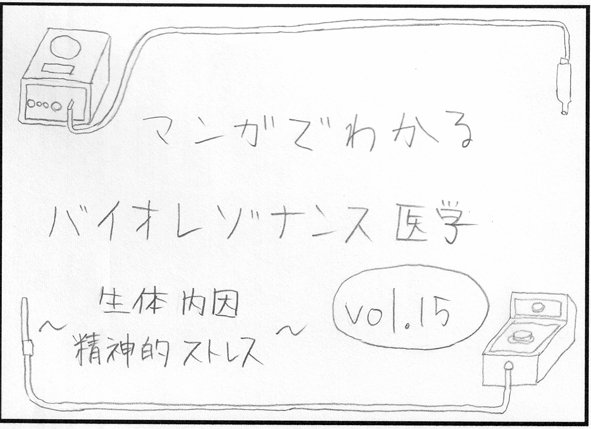 マンガでわかる
バイオレゾナンス医学
～生体内因
精神的ストレス～
vol.15